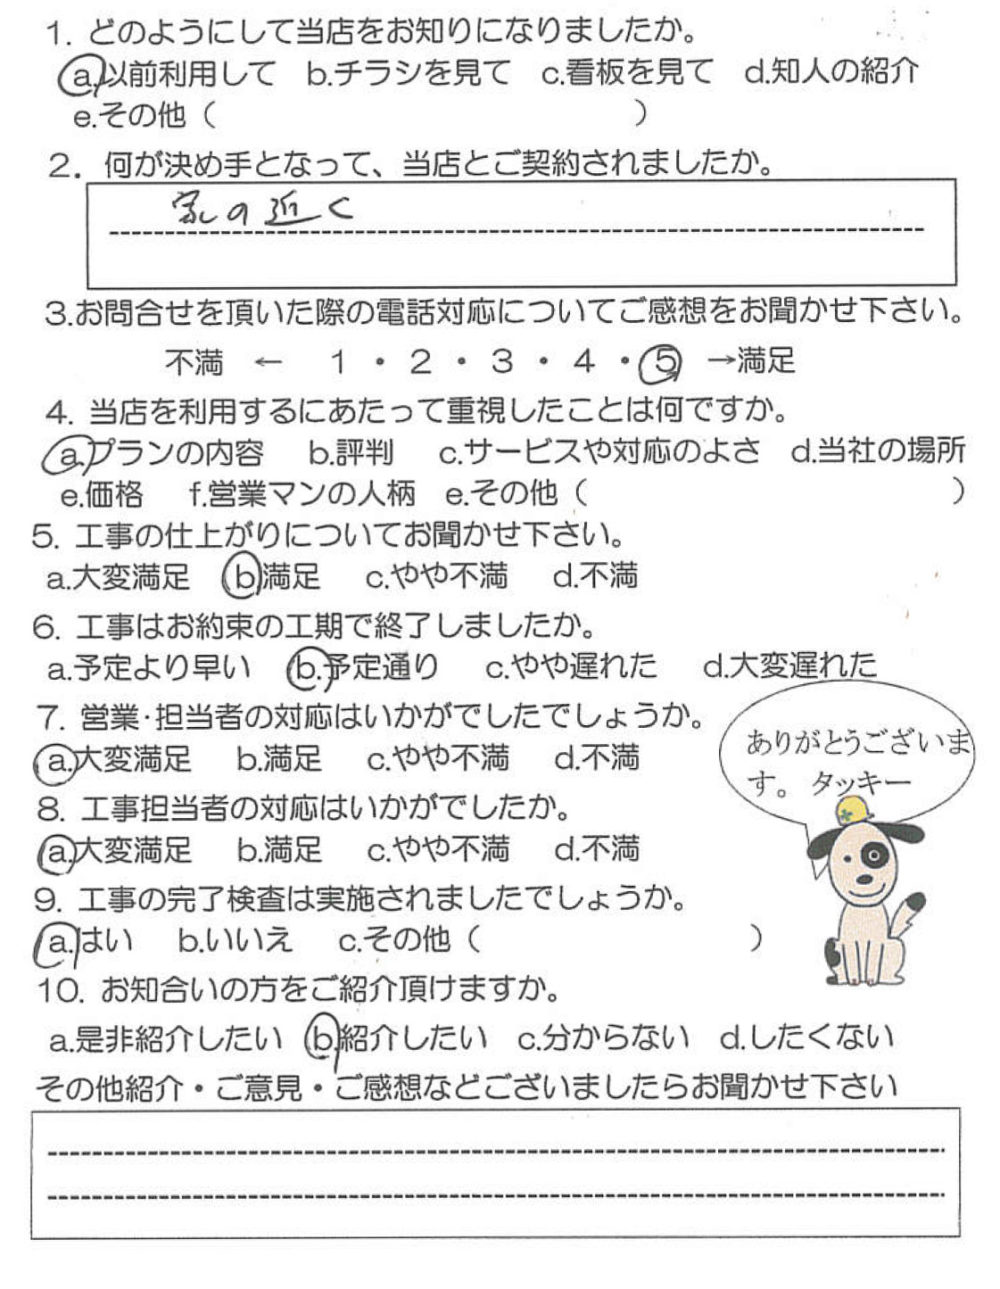 1. どのようにして当店をお知りになりましたか。
a.以前利用して b.チラシを見て c.看板を見て d.知人の紹介
e.その他（ ）
2. 何が決め手となって、当店とご契約されましたか。
家の近く
3.お問合せを頂いた際の電話対応についてご感想をお聞かせ下さい。
不満 ← 1 ・ 2 ・ 3 ・ 4 ・ 5 →満足
4. 当店を利用するにあたって重視したことは何ですか。
a.プランの内容 b.評判 c.サービスや対応のよさ d.当社の場所
e.価格 f.営業マンの人柄 e.その他（ ）
5. 工事の仕上がりについてお聞かせ下さい。
a.大変満足 b.満足 c.やや不満 d.不満
6. 工事はお約束の工期で終了しましたか。
a.予定より早い b.予定通り c.やや遅れた d.大変遅れた
7. 営業・担当者の対応はいかがでしたでしょうか。
a.大変満足 b.満足 c.やや不満 d.不満
ありがとうございま
す。 タッキー
8. 工事担当者の対応はいかがでしたか。
a.大変満足 b.満足 c.やや不満 d.不満
9. 工事の完了検査は実施されましたでしょうか。
a.はい b.いいえ c.その他（ ）
10. お知合いの方をご紹介頂けますか。
a.是非紹介したい b.紹介したい c.分からない d.したくない
その他紹介・ご意見・ご感想などございましたらお聞かせ下さい